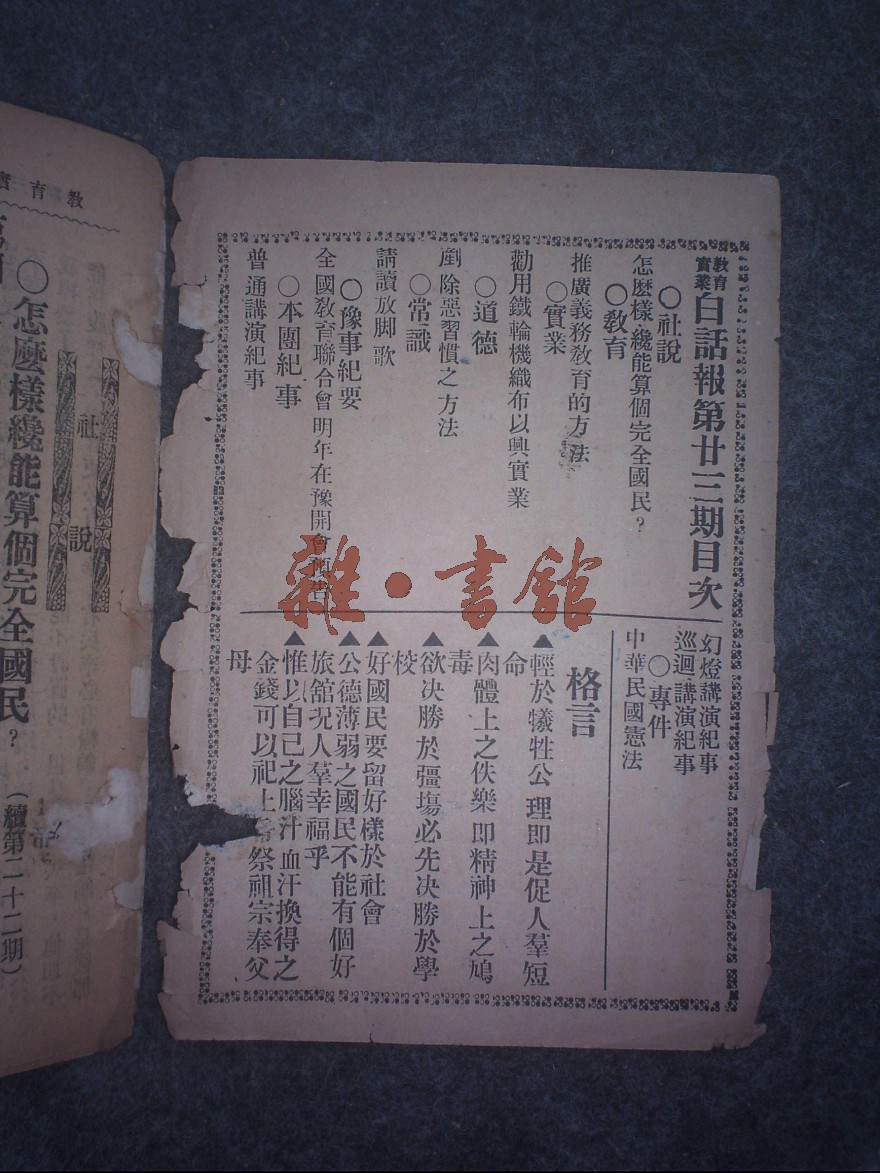 教育實業白話報第廿三期目次
○社説
怎麽樣纔能算個完全國民?
○敎育
推廣義務敎育的方法
○實業
勸用鐵輪機織布以興實業
○道德
剷除惡習慣之方法
○常識
請讀放脚歌
○豫事紀要
全國敎育聯合會明年在豫開會預告
○本團紀事
普通講演紀事
幻燈講演紀事
巡迴講演紀事
○專件
中華民國憲法
格言
▲輕於犧牲公理即是促人羣短
命
▲肉體上之佚樂即精神上之鳩
毒
▲欲决勝於彊塲必先决勝於學
校
▲好國民要留好樣於社會
▲公德薄弱之國民不能有個好
旅舘况人羣幸福乎
▲惟以自己之腦汁血汗換得之
金錢可以祀上 祭祖宗奉父
母
雜·書館
教育
社説
○怎麽樣纔能算個完全國民?
(續第二十二期)